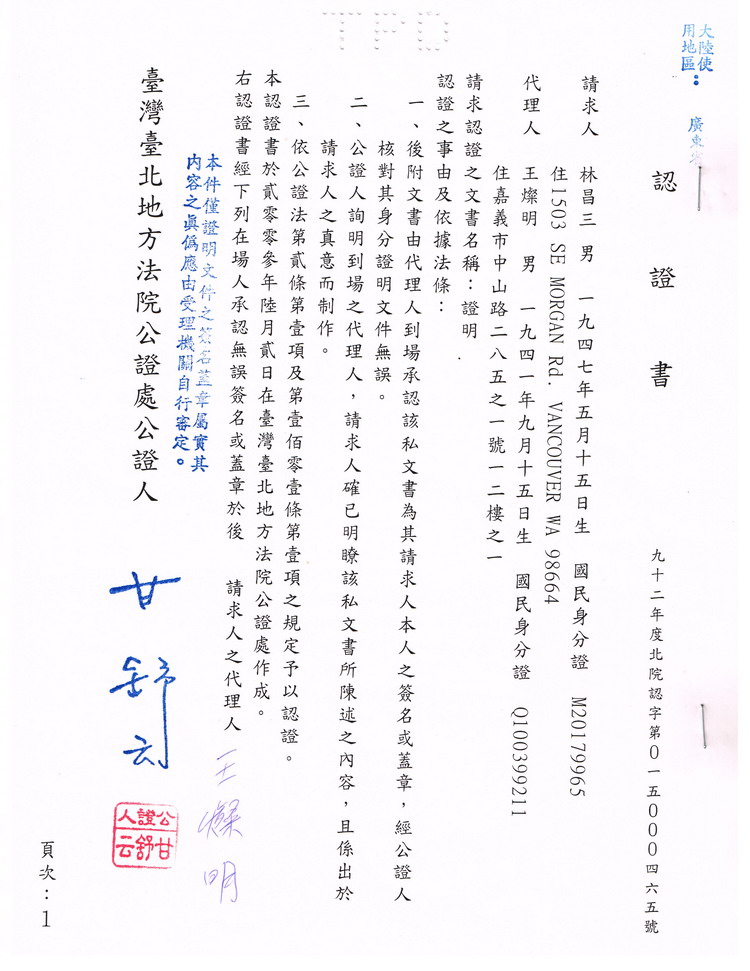 大陸使
用地區：
廣東省
認證書
九十二年度北院認字第0一五000四六五號
請求人　林昌三　男　一九四七年五月十五日生　國民身分證　M20179965
住1503 SE MORGAN Rd. VANCOUVER WA 98664
代理人　王燦明　男　一九四一年九月十五日生　國民身分證　Q100399211
住嘉義市中山路二八五之一號一二樓之一
請求認證之文書名稱：證明
認證之事由及依據法條：
一、後附文書由代理人到場承認該私文書為其請求人本人之簽名或蓋章，經公證人
核對其身分證明文件無誤。
二、公證人詢明到場之代理人，請求人確已明瞭該私文書所陳述之內容，且係出於
請求人之真意而制作。
三、依公證法第貳條第壹項及第壹佰零壹條第壹項之規定予以認證。
本認證書於貳零零參年陸月貳日在臺灣臺北地方法院公證處作成。
右認證書經下列在場人承認無誤簽名或蓋章於後　請求人之代理人　王燦明
本件僅證明文件之簽名蓋章屬實其
內容之真偽應由受理機關自行審定。
臺灣臺北地方法院公證處公證人　甘舒云
公證人
甘舒云
頁次：1